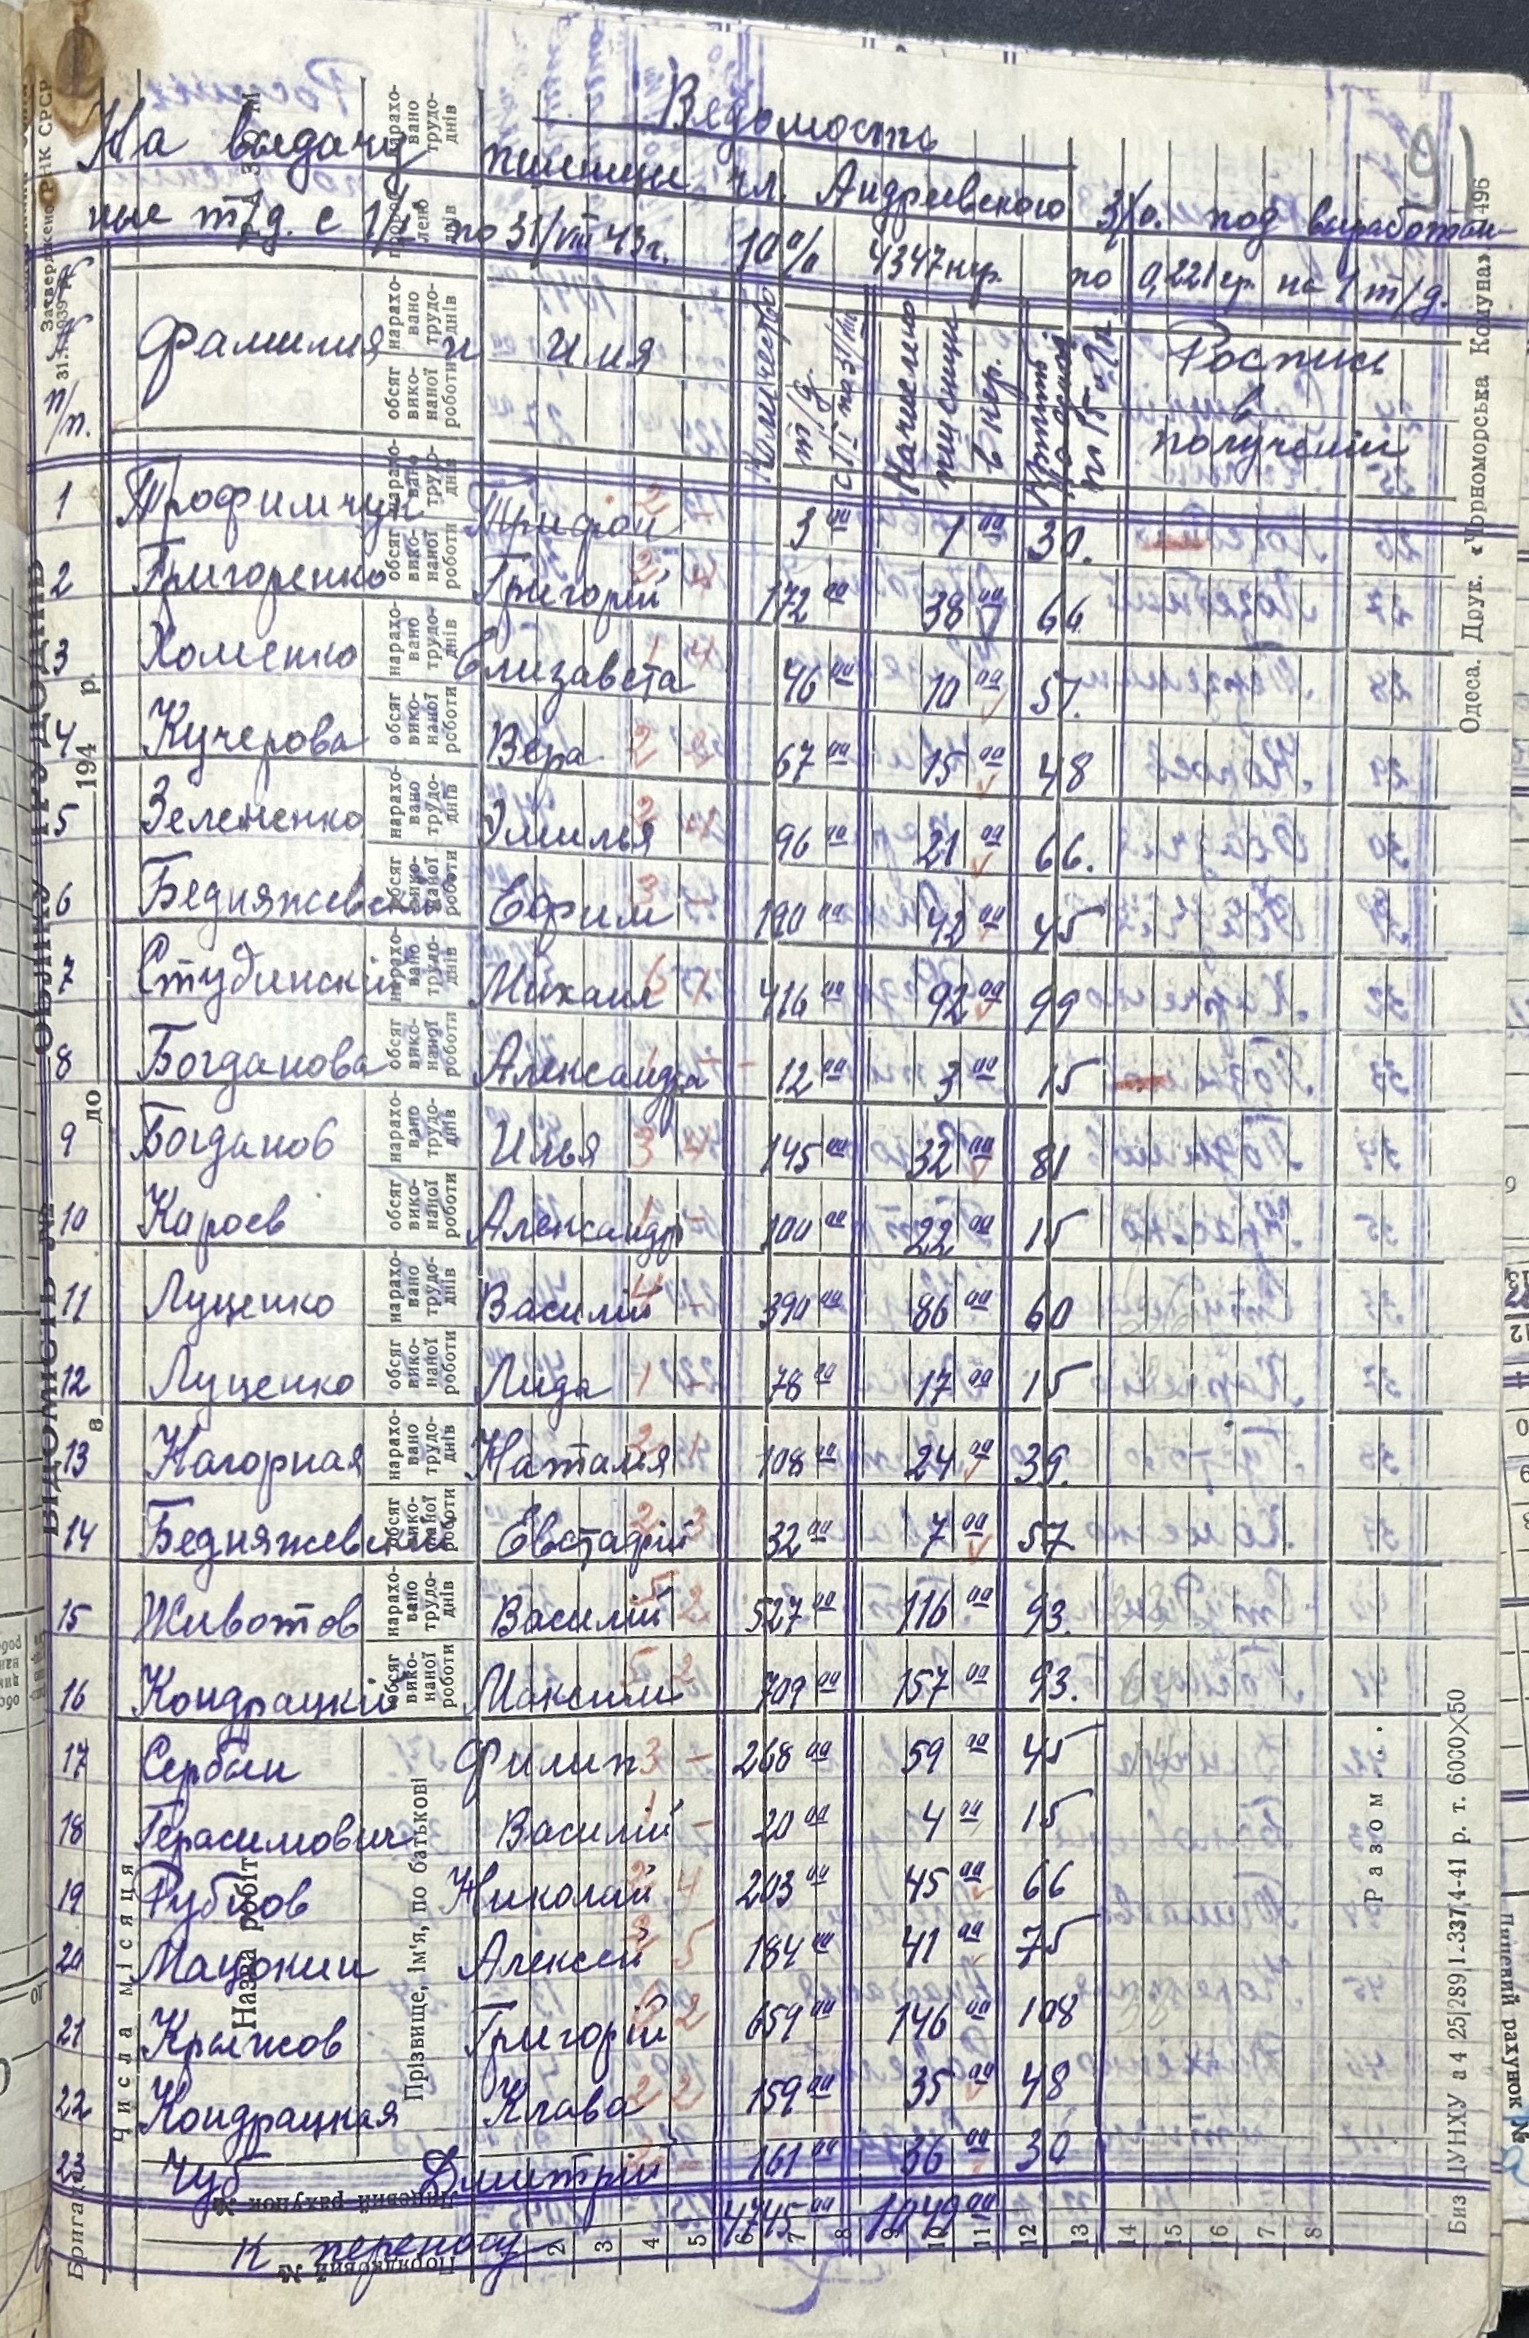 91
Ведомость
На выдачу пшеницы чл. Андреевского з/о. под выработан-
ные т/д. с 1/I по 31/VIII 43 г. 10% 4347 кгр. по 0,221 гр. на 1 т/д.
№ п/п. Фамилия и имя Количество т/д. с 1/I по 31/VIII Начислено пшеницы в кгр. Роспись в получении
1 Трофимчук Трифон 3 00 1 00 30.
2 Григоренко Григорій 172 00 38 00 66
3 Хоменко Елизавета 46 00 10 00 57.
4 Кучерова Вера 67 00 15 00 48
5 Зелененко Эмилья 96 00 21 00 66.
6 Бедняжевский Ефим 190 00 42 00 45
7 Студинскій Михаил 416 00 92 00 99
8 Богданова Александра 12 00 3 00 15
9 Богданов Илья 145 00 32 00 81
10 Кароев Александр 100 00 22 00 15
11 Луценко Василій 390 00 86 00 60
12 Луценко Лида 78 00 17 00 15
13 Нагорная Наталия 108 00 24 00 39.
14 Бедняжевский Евстафій 32 00 7 00 57
15 Животов Василій 527 00 116 00 93.
16 Кондрацкій Максим 709 00 157 00 93.
17 Сербин Филип 268 00 59 00 45
18 Герасимович Василій 20 00 4 00 15
19 Рубцов Николай 203 00 45 00 66
20 Мацокин Алексей 184 00 41 00 75
21 Крыжов Григорій 659 00 146 00 108
22 Кондрацкая Клава 159 00 35 00 48
23 Чуб Дмитрій 161 00 36 00 30
К переносу 4745 00 1049 00
ВІДОМІСТЬ № ОБЛІКУ ТРУДОДНІВ
в до 194 р.
Числа місяця
Назва робіт
Прізвище, ім'я, по батькові
Лицевий рахунок №
Порядковий №
Бригада
2 3 4 5 6 7 8 9 10 11 12 13 14 15 16 17 18
Разом . . .
обсяг виконаної роботи
нараховано трудоднів
Одеса. Друк. «Чорноморська Комуна»